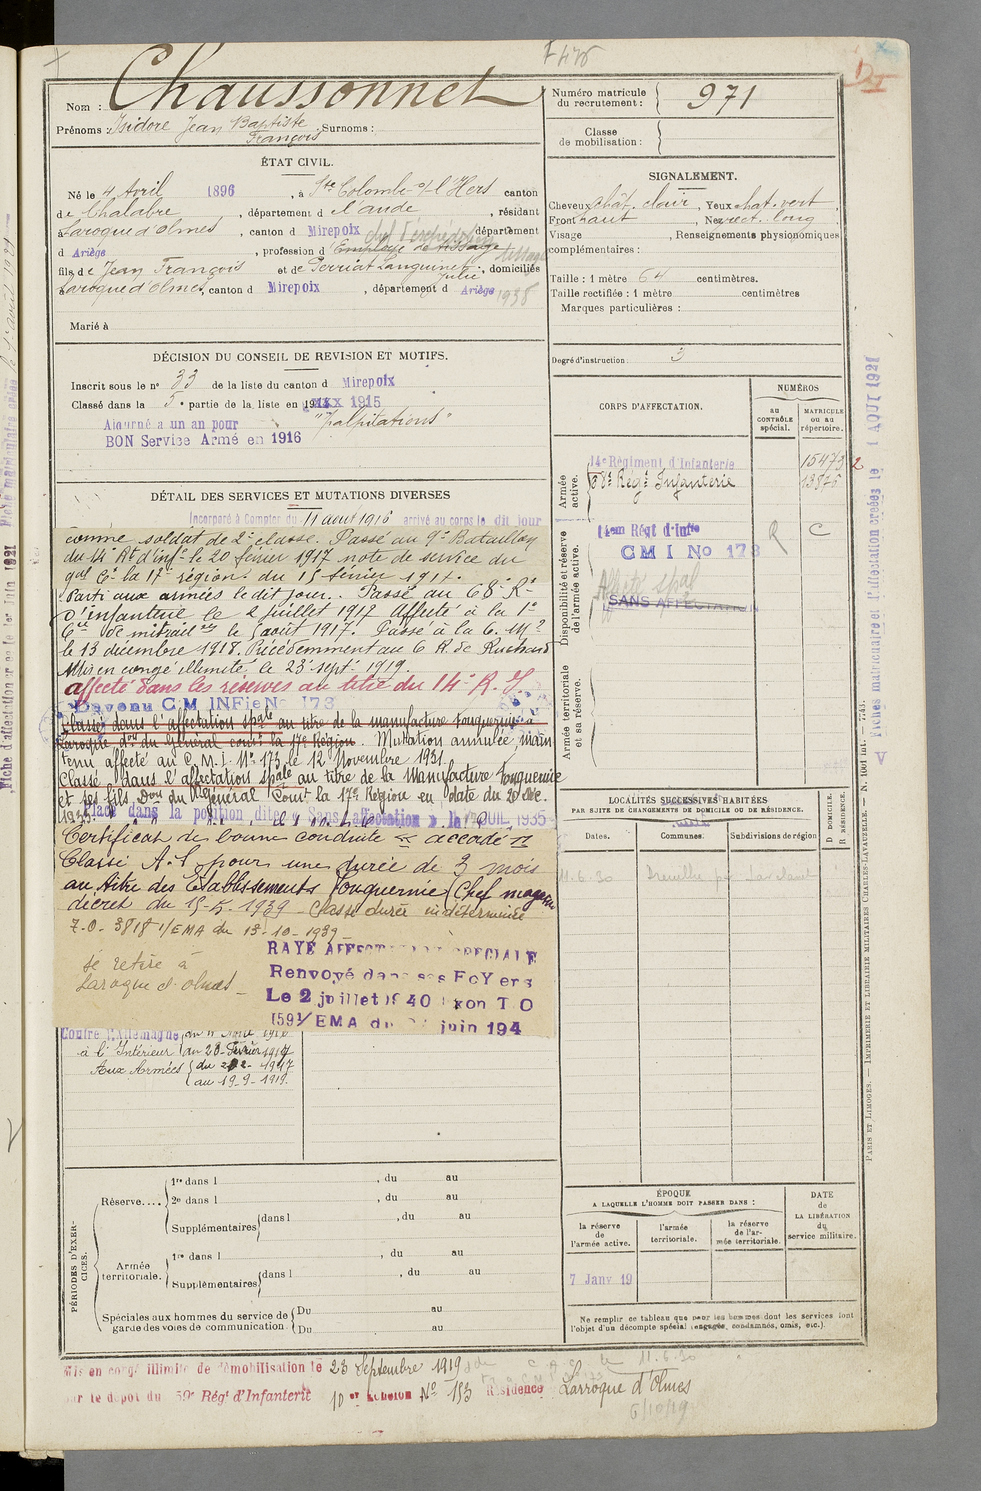 Nom : Chaussonnet
Prénoms : Isidore Jean Baptiste François Surnoms :
Numéro matricule du recrutement : 971
Classe de mobilisation :
ÉTAT CIVIL.
Né le 4 Avril 1896, à Ste Colombe s/l'Hers canton
de Chalabre, département de l'aude, résidant
à Laroque d'Olmes, canton d Mirepoix département
d Ariège, profession d Employé de tissage
fils de Jean François et de Perriat Languine Julie, domiciliés
à Laroque d'Olmes, canton d Mirepoix, département d Ariège
1938
Marié à
SIGNALEMENT.
Cheveux chât. clair, Yeux chat. vert,
Front haut, Nez rect. long
Visage , Renseignements physionomiques
complémentaires :
Taille : 1 mètre 64 centimètres.
Taille rectifiée : 1 mètre centimètres
Marques particulières :
Degré d'instruction : 3
DÉCISION DU CONSEIL DE REVISION ET MOTIFS.
Inscrit sous le n° 33 de la liste du canton d Mirepoix
Classé dans la 5e partie de la liste en 1915
Ajourné a un an pour "palpitations"
BON Service Armé en 1916
DÉTAIL DES SERVICES ET MUTATIONS DIVERSES
Incorporé à Compter du 11 aout 1916 arrivé au corps le dit jour
comme soldat de 2e classe. Passé au 9e Bataillon
du 14e Rt d'inf. le 20 février 1917 note de service du
gal Ct la 17e région du 15 février 1917.
Parti aux armées le dit jour. Passé au 68e Rt
d'infanterie le 2 juillet 1917 Affecté à la 1e
Cie de mitrailses le 1 août 1917. Passé à la C. M.2
le 13 décembre 1918. Précédemment au 6 R. de Ruchard
Mis en congé illimité le 23 sept. 1919.
affecté dans les réserves au titre du 14e R. I.
Devenu C M INFie No 173
Classé dans l'affectation spale au titre de la manufacture Fonquernie à
Laroque don du Général comt la 17e Région. Mutation annulée, main
tenu affecté au C.M.I. No 173 le 12 Novembre 1931.
Classé dans l'affectation spale au titre de la Manufacture Fonquernie
et ses fils Don du Général Comt la 17e Région en date du 20 Xbre.
Placé dans la position dite Sans affectation le JUIL 1935
Certificat de bonne conduite "accordé"
Classé A.S. pour une durée de 3 mois
au titre des Etablissements Fonquernie (Chef magasin
décret du 15-5-1939 - Classé durée indéterminée
7.0.3818 1/EMA du 13-10-1939
Se retire à
Laroque d'olmes
RAYÉ AFFECTATION SPECIALE
Renvoyé dans ses FoYers
Le 2 juillet 1940
1591/EMA du juin 194
Contre l'Allemagne
à l'Intérieur au 20 Février 1917
Aux Armées du 21-2-1917
au 19-9-1919.
CORPS D'AFFECTATION.
NUMÉROS
au CONTRÔLE spécial.
MATRICULE ou au répertoire.
Armée active.
14e Régiment d'Infanterie 15473
68e Régt Infanterie 13875
Disponibilité et réserve de l'armée active.
14em Régt d'Infie R C
C M I No 173
Affecté spal
SANS AFFECTATION
Armée territoriale et sa réserve.
LOCALITÉS SUCCESSIVES HABITÉES
PAR SUITE DE CHANGEMENTS DE DOMICILE OU DE RÉSIDENCE.
Dates. Communes. Subdivisions de région
D DOMICILE. R RÉSIDENCE.
11.6.30 Dreuilhe par Lavelanet
PÉRIODES D'EXERCICES.
Réserve.... 1re dans l , du au
2e dans l , du au
Supplémentaires dans l , du au
Armée territoriale. 1re dans l , du au
Supplémentaires dans l , du au
Spéciales aux hommes du service de garde des voies de communication. Du au
Du au
ÉPOQUE
A LAQUELLE L'HOMME DOIT PASSER DANS :
la réserve de l'armée active.
l'armée territoriale.
la réserve de l'armée territoriale.
DATE de LA LIBÉRATION du service militaire.
7 Janv 19
Ne remplir ce tableau que pour les hommes dont les services font
l'objet d'un décompte spécial (engagés, condamnés, omis, etc.).
Mis en congé illimité de démobilisation le 23 Septembre 1919
par le dépôt du 59e Régt d'Infanterie 10e Echelon No 153 Résidence Larroque d'Olmes
6/10/19
PARIS ET LIMOGES. — IMPRIMERIE ET LIBRAIRIE MILITAIRES CHARLES-LAVAUZELLE. — N. 1001 int. — 7743.
Fiches matriculaire et l'affectation créées le 1 AOUT 1921